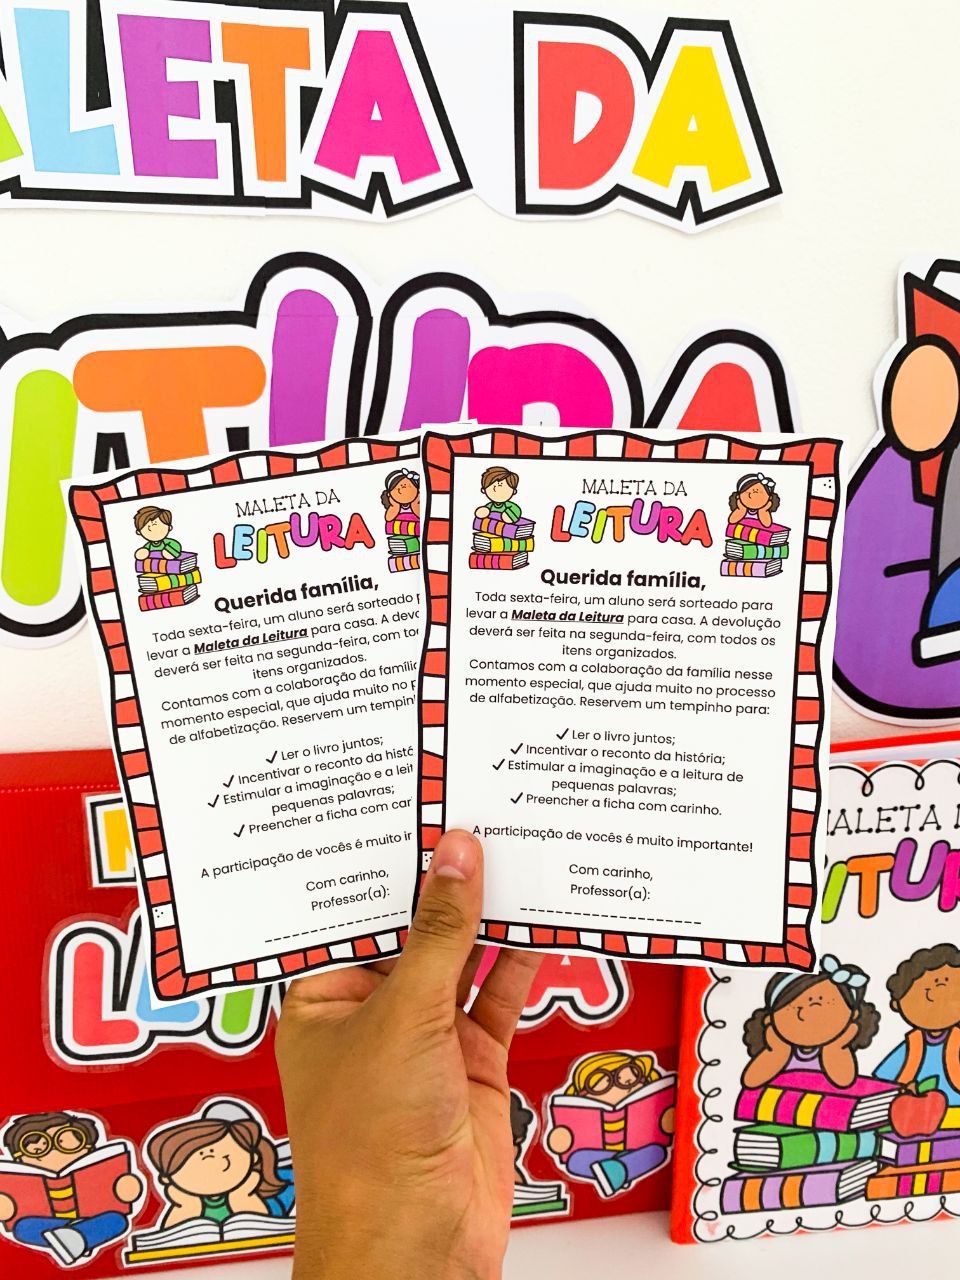 ALETA DA
ITURA
MALETA DA
LEITURA
Querida família,
Toda sexta-feira, um aluno será sorteado
levar a Maleta da Leitura para casa. A
deverá ser feita na segunda-feira, com
itens organizados.
Contamos com a colaboração da
momento especial, que ajuda muito no
de alfabetização. Reservem um
✓ Ler o livro juntos;
✓ Incentivar o reconto da
✓ Estimular a imaginação e a
pequenas palavras;
✓ Preencher a ficha com
A participação de vocês é muito
Com carinho,
Professor(a):
MALETA DA
LEITURA
Querida família,
Toda sexta-feira, um aluno será sorteado para
levar a Maleta da Leitura para casa. A devolução
deverá ser feita na segunda-feira, com todos os
itens organizados.
Contamos com a colaboração da família nesse
momento especial, que ajuda muito no processo
de alfabetização. Reservem um tempinho para:
✓ Ler o livro juntos;
✓ Incentivar o reconto da história;
✓ Estimular a imaginação e a leitura de
pequenas palavras;
✓ Preencher a ficha com carinho.
A participação de vocês é muito importante!
Com carinho,
Professor(a):
LEITURA
MALETA
ITUR